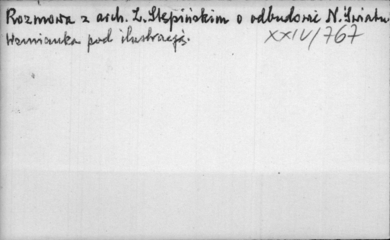 Rozmowa z arch. Z. Stępińskim o odbudowie N. Świata
Wzmianka pod ilustracją.
XXIV/767